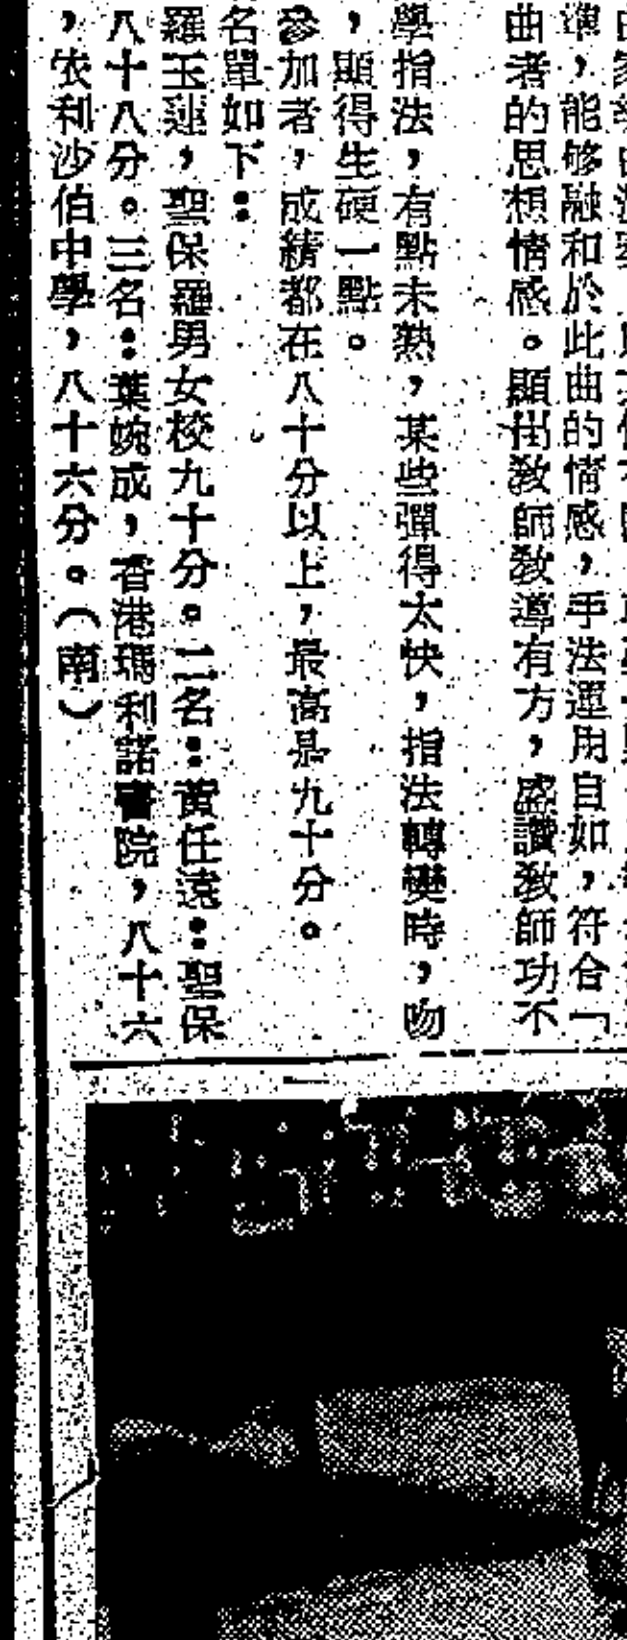 準，能够融和於此曲的情感，手法運用自如，符合「
曲者的思想情感。顯出教師教導有方，盛讚教師功不
學指法，有點未熟，某些彈得太快，指法轉變時，吻
，顯得生硬一點。
參加者，成績都在八十分以上，最高是九十分。
名單如下：
羅玉蓮，聖保羅男女校九十分。二名：黃任遠：聖保
八十八分。三名：葉婉成，香港瑪利諾書院，八十六
，依利沙伯中學，八十六分。（南）